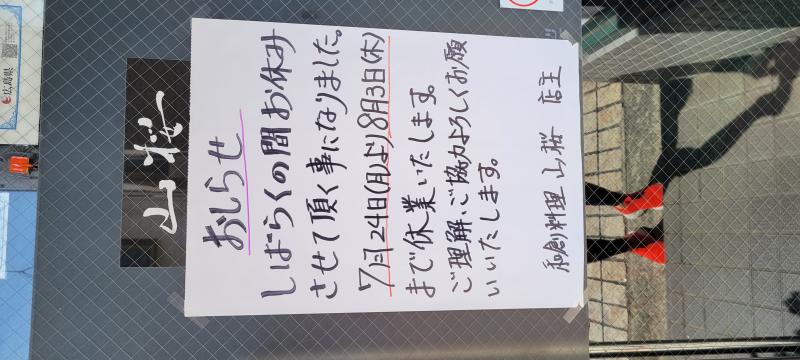 おしらせ
しばらくの間お休み
させて頂く事になりました。
7月24日(月)より8月3日(木)
まで休業いたします。
ご理解、ご協力よろしくお願
いいたします。
和創料理 山桜 店主
山桜
広島県